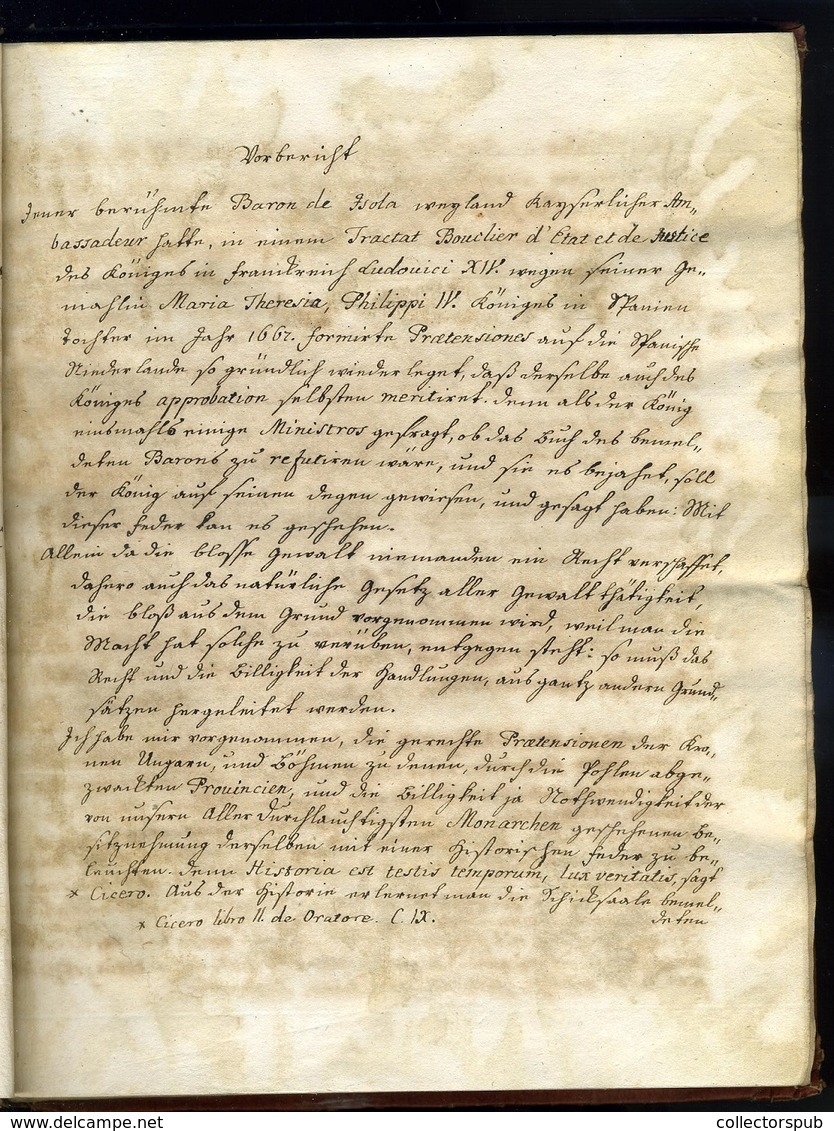 Vorbericht
Jener berühmte Baron de Isola weyland Kayserlicher Am„
bassadeur hatte, in einem Tractat Bouclier d'Etat et de Justice
des Königes in Frankreich Ludovici XIV. wegen seiner Ge„
mahlin Maria Theresia, Philippi IV. Königes in Spanien
Tochter im Jahr 1667. formirte Prætensiones auf die Spanische
Niederlande so gründlich wiederleget, daß derselbe auch des
Königes approbation selbsten meritiret. denn als der König
einsmahls einige Ministros gefragt, ob das Buch des bemel„
deten Barons zu refutiren wäre, und sie es bejahet, soll
der König auf seinen Degen gewiesen, und gesagt haben: Mit
dieser Feder kan es geschehen.
Allein da die blosse Gewalt niemanden ein Recht verschaffet,
dahero auch das natürliche Gesetz aller Gewaltthätigkeit,
die bloß aus dem Grund vorgenommen wird, weil man die
Macht hat solche zu verüben, entgegen steht: so muß das
Recht und die Billigkeit der Handlungen, aus gantz andern Grund„
sätzen hergeleitet werden.
Ich habe mir vorgenommen, die gerechte Prætensionen der Kro„
nen Ungarn, und Böhmen zu denen, durch die Pohlen abge„
zwackten Provincien, und die Billigkeit ja Nothwendigkeit der
von unsern Aller Durchlauchtigsten Monarchen geschehenen be„
sitznehmung derselben mit einer Historischen Feder zu be„
leuchten. denn Historia est testis temporum, lux veritatis, sagt
* Cicero. Aus der Historie erlernet man die Schicksaale bemel„
* Cicero libro II. de Oratore. C. IX. deten
www.delcampe.net
collectorspub